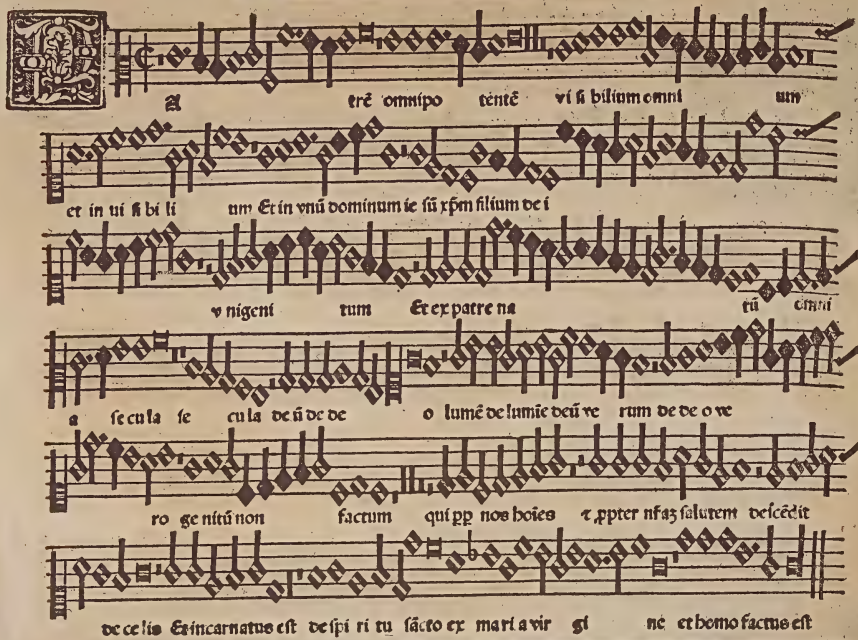 A trē omnipo tentē vi si bilium omni um
et in ui si bi li um Et in vnū dominum ie sū xp̄m filium de i
v nigeni tum Et ex patre na tū omni
a se cula se cu la de ū de de o lumē de lumīe deū ve rum de de o ve
ro ge nitū non factum qui pp nos hoīes ⁊ ppter nraꝫ salutem descēdit
de ce lis Et incarnatus est de spi ri tu sācto ex mari a vir gi ne et homo factus est